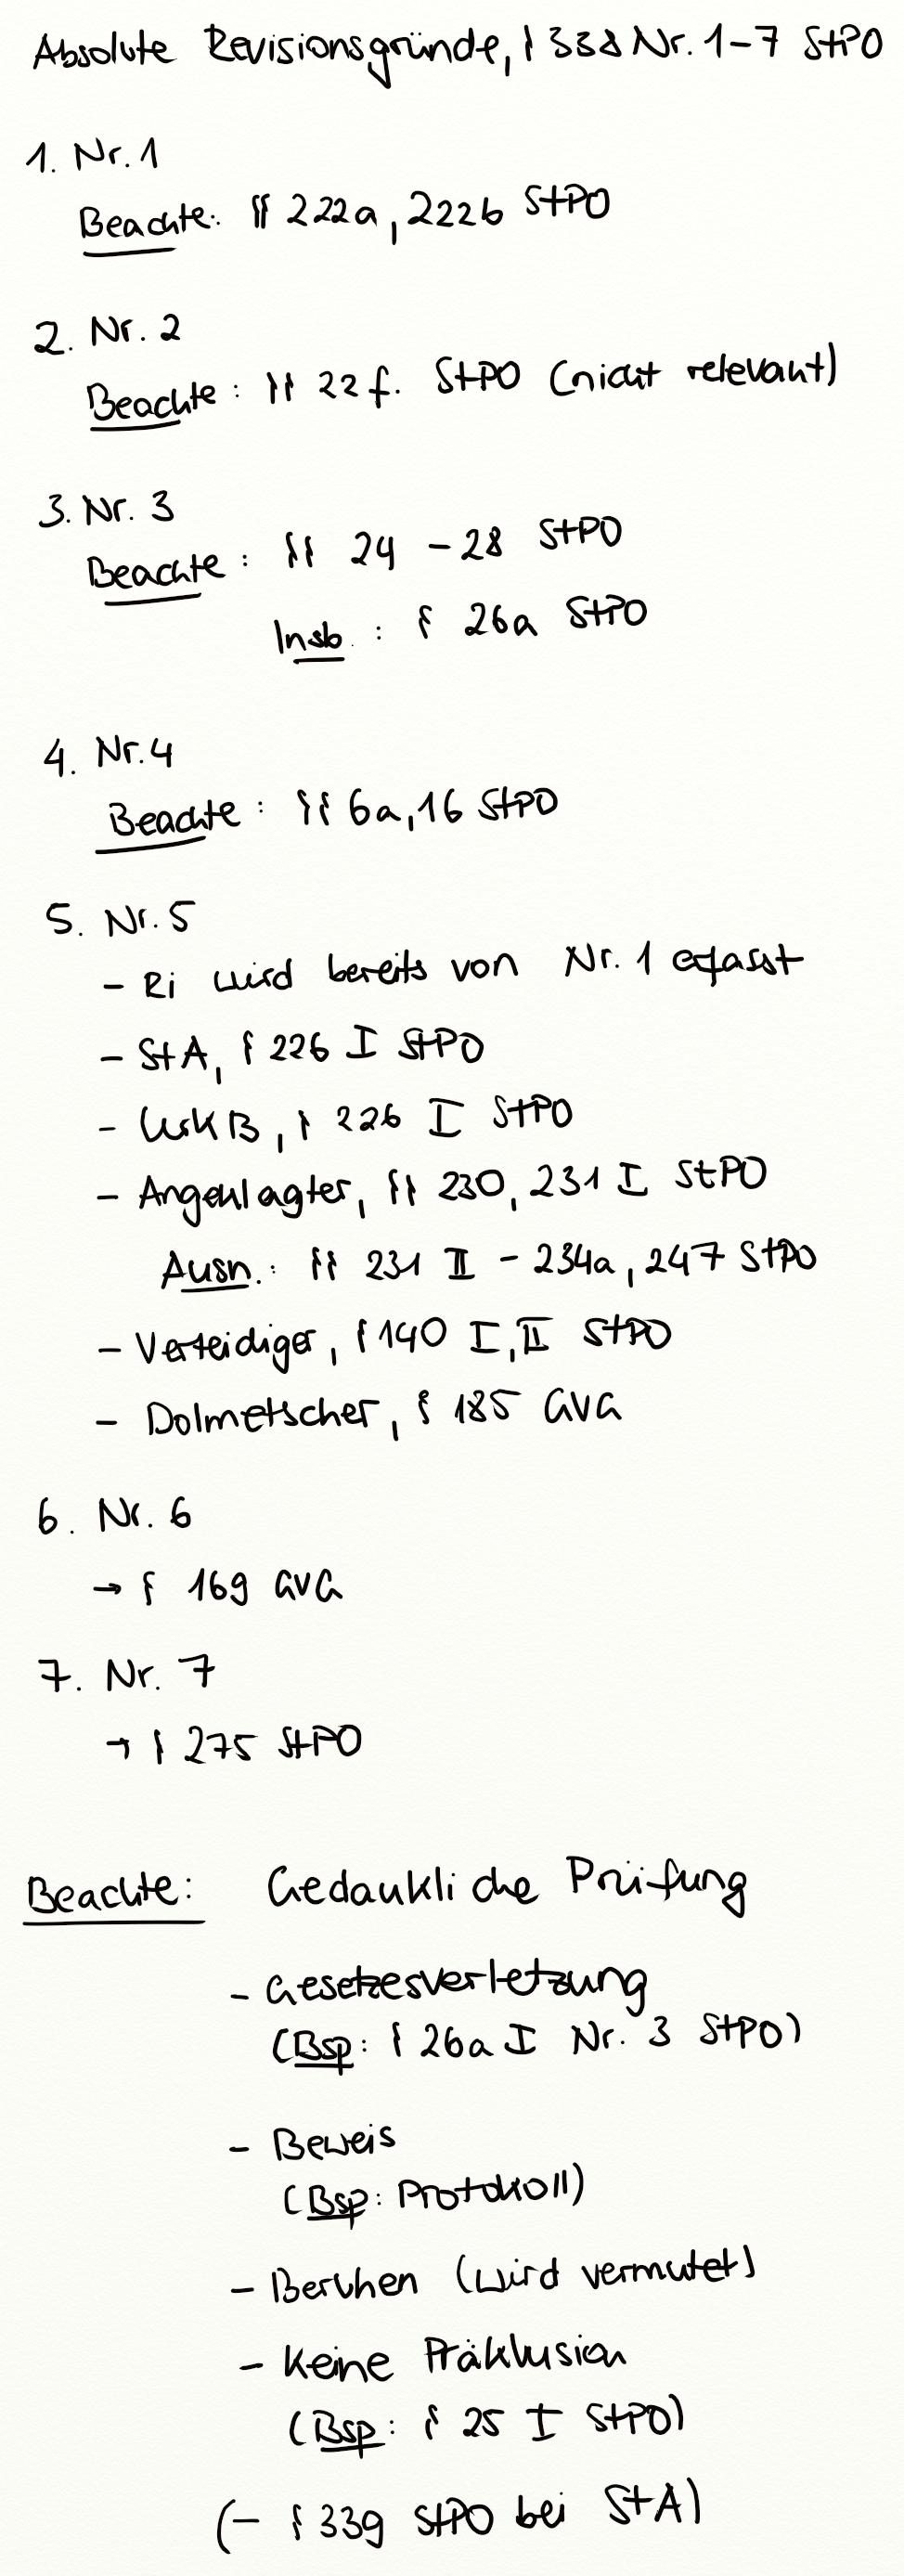 Absolute Revisionsgründe, § 338 Nr. 1-7 StPO
1. Nr. 1
Beachte: §§ 222a, 222b StPO
2. Nr. 2
Beachte: §§ 22 f. StPO (nicht relevant)
3. Nr. 3
Beachte: §§ 24 - 28 StPO
Insb.: § 26a StPO
4. Nr. 4
Beachte: §§ 6a, 16 StPO
5. Nr. 5
- Ri wird bereits von Nr. 1 erfasst
- StA, § 226 I StPO
- UrkB, § 226 I StPO
- Angeklagter, §§ 230, 231 I StPO
Ausn.: §§ 231 II - 234a, 247 StPO
- Verteidiger, § 140 I, II StPO
- Dolmetscher, § 185 GVG
6. Nr. 6
→ § 169 GVG
7. Nr. 7
→ § 275 StPO
Beachte: Gedankliche Prüfung
- Gesetzesverletzung
(Bsp: § 26a I Nr. 3 StPO)
- Beweis
(Bsp: Protokoll)
- Beruhen (wird vermutet)
- Keine Präklusion
(Bsp: § 25 I StPO)
(- § 339 StPO bei StA)